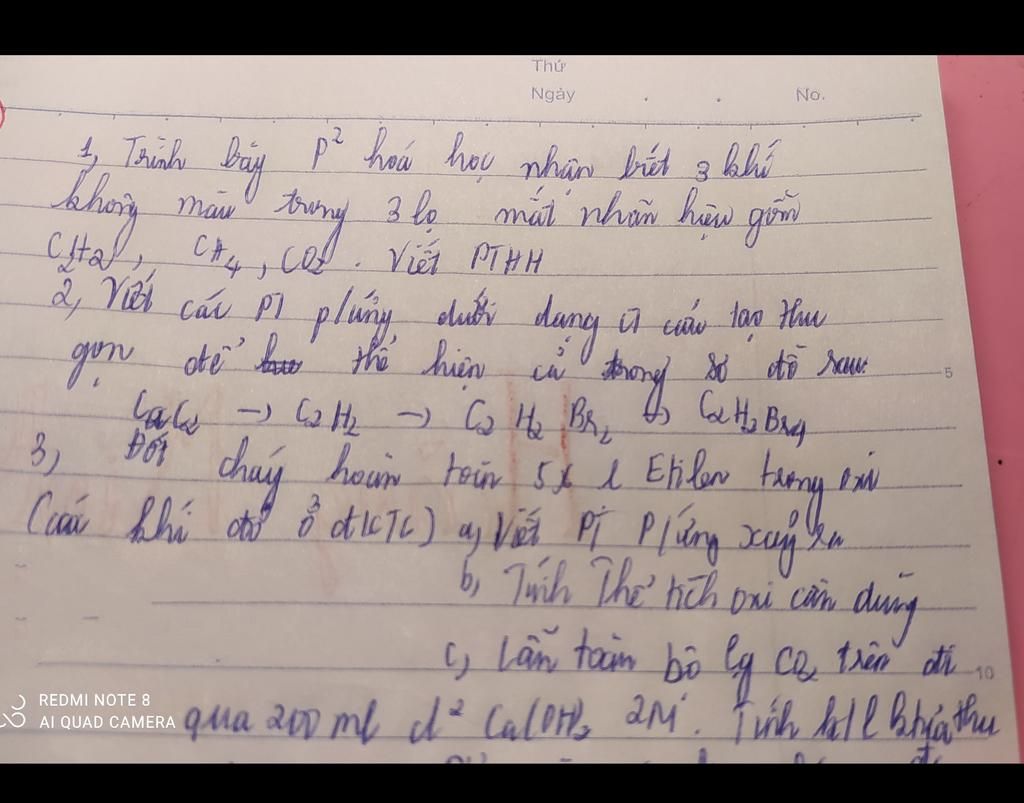 Thứ
Ngày . . No.
1, Trình bày P² hoá học nhận biết 3 khí
không màu trong 3 lọ mất nhãn hiệu gồm
C₂H₂, CH₄, CO₂. Viết PTHH
2, Viết các PT p/ứng dưới dạng ct cấu tạo thu
gọn để thể hiện cả trong sơ đồ sau:
5
CaC₂ → C₂H₂ → C₂H₂Br₂ → C₂H₂Br₄
3, Đốt cháy hoàn toàn l Etilen trong oxi
(các khí đo ở đktc) a, Viết PT p/ứng xảy ra
b, Tính Thể tích oxi cần dùng
c, Dẫn toàn bộ lg CO₂ trên đi
10
qua 200 ml d² Ca(OH)₂ 2M. Tính k/l thu
REDMI NOTE 8
AI QUAD CAMERA